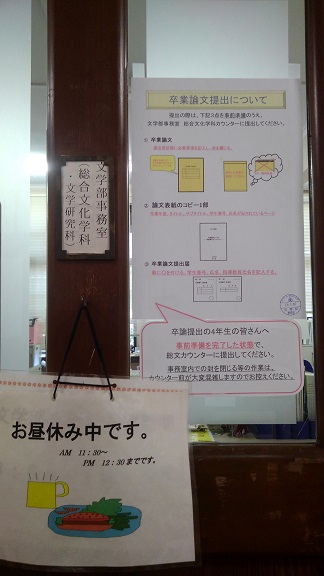 卒業論文提出について
提出の際は、下記3点を事前準備のうえ、
文学部事務室 総合文化学科カウンターに提出してください。
① 卒業論文
② 論文表紙のコピー1部
③ 卒業論文提出届
卒論提出の4年生の皆さんへ
事前準備を完了した状態で、
総文カウンターに提出してください。
事務室内での封を閉じる等の作業は、
カウンター前が大変混雑しますのでお控えください。
文学部事務室
(総合文化学科
・文学研究科)
お昼休み中です。
AM 11:30~
PM 12:30までです。